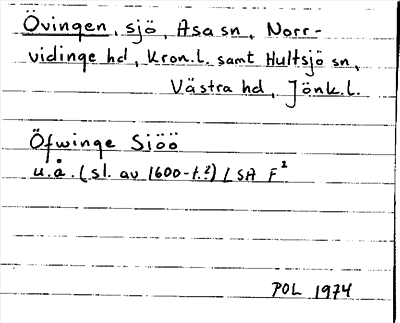 Övingen, sjö, Asa sn, Norr-
vidinge hd, Kron.l. samt Hultsjö sn,
Västra hd, Jönk.l.
Öfwinge Siöö
u.å. (sl. av 1600-t.?) LSA F²
POL 1974